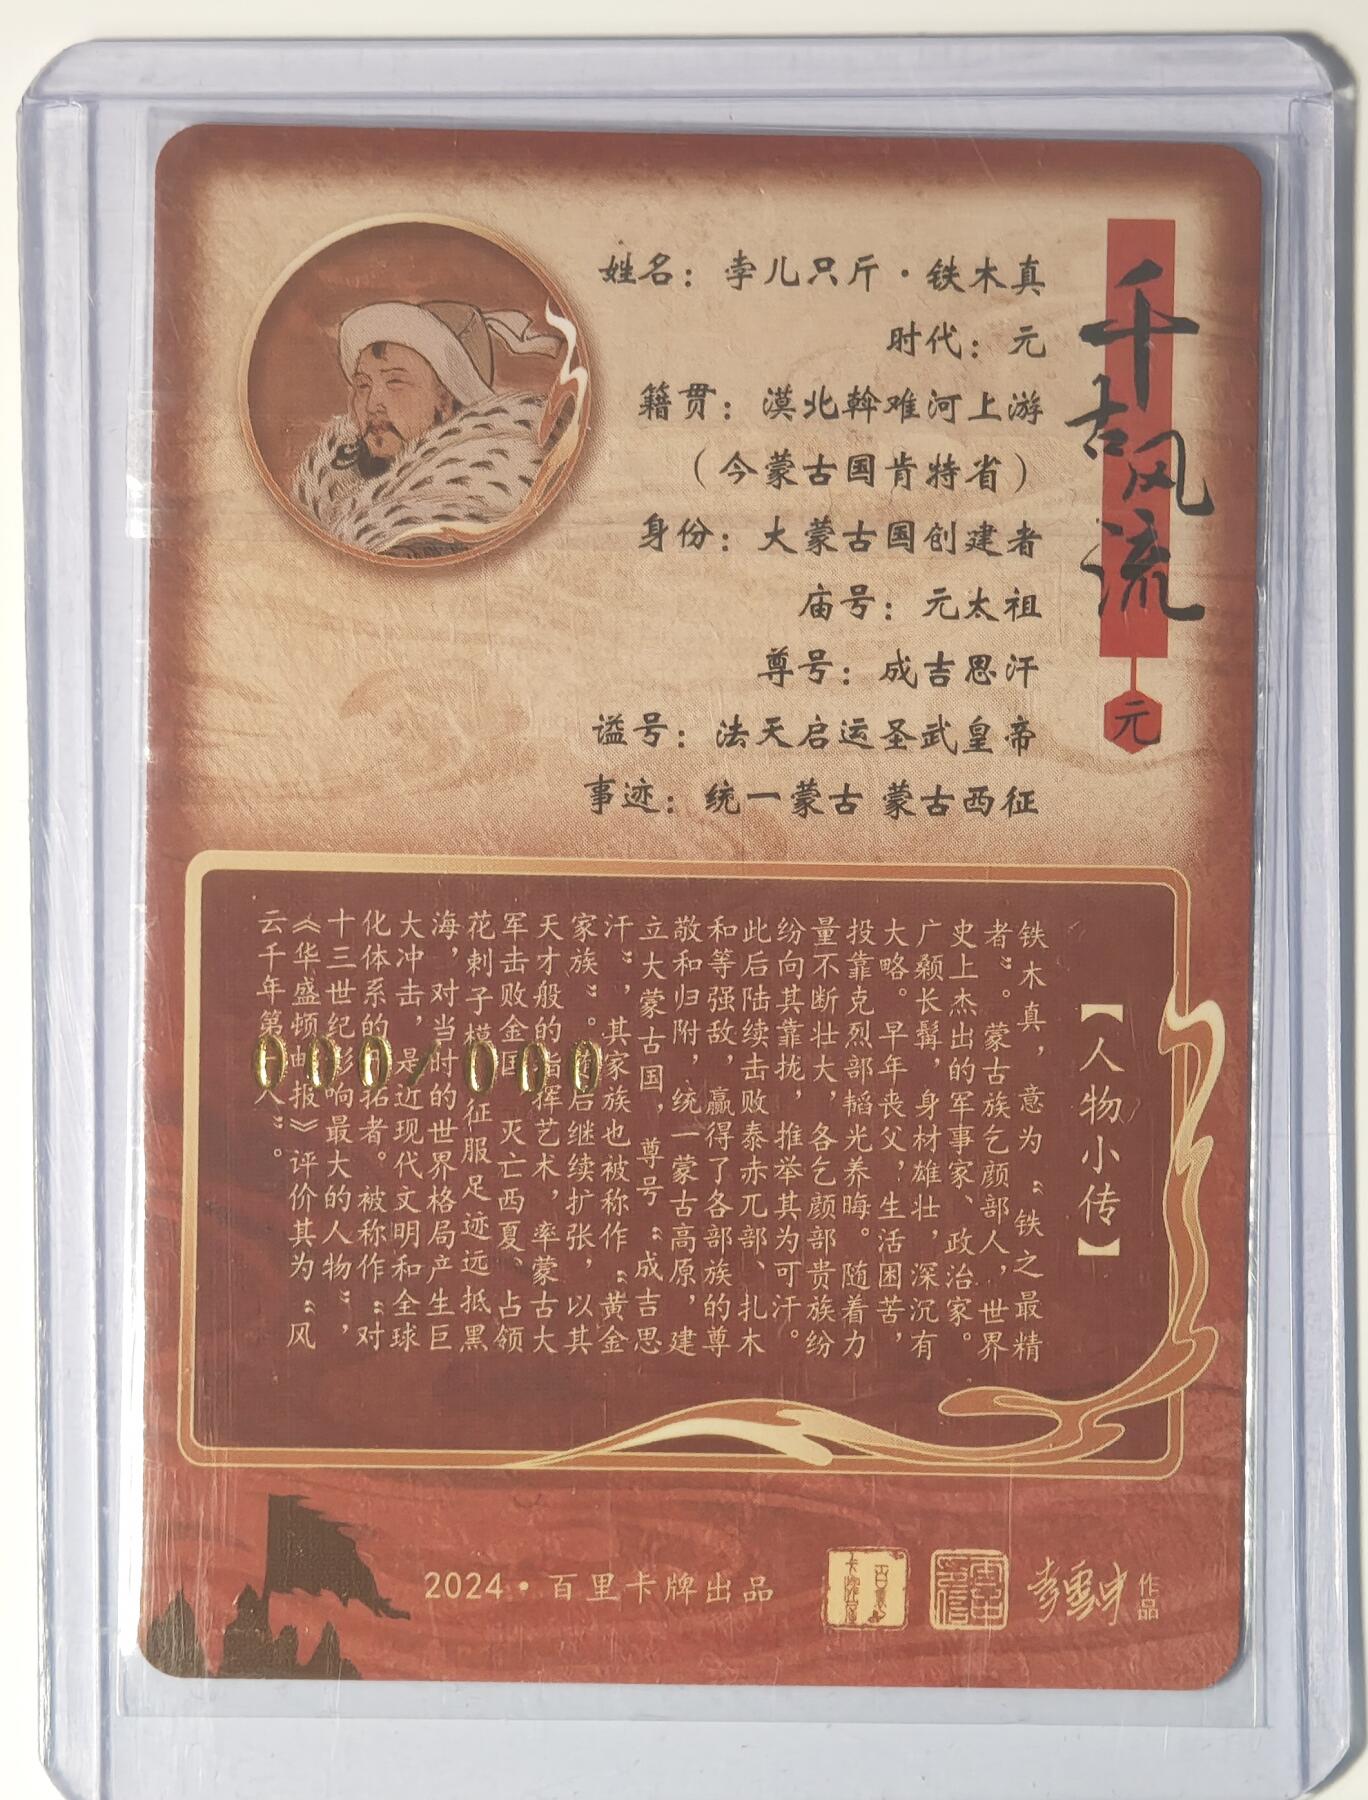 千古风流
元
姓名：孛儿只斤·铁木真
时代：元
籍贯：漠北斡难河上游
（今蒙古国肯特省）
身份：大蒙古国创建者
庙号：元太祖
尊号：成吉思汗
谥号：法天启运圣武皇帝
事迹：统一蒙古 蒙古西征
【人物小传】
铁木真，意为“铁之最精
者”。蒙古族乞颜部人，世界
史上杰出的军事家、政治家。
广颡长髯，身材雄壮，深沉有
大略。早年丧父，生活困苦，
投靠克烈部韬光养晦。随着力
量不断壮大，各乞颜部贵族纷
纷向其靠拢，推举其为可汗。
此后陆续击败泰赤兀部、扎木
和等强敌，赢得了各部族的尊
敬和归附，统一蒙古高原，建
立大蒙古国，尊号“成吉思
汗”，其家族也被称作“黄金
家族”。后继续扩张，以其
天才般的指挥艺术，率蒙古大
军击败金国，灭亡西夏。占领
花剌子模，征服足迹远抵黑
海，对当时的世界格局产生巨
大冲击，是近现代文明和全球
化体系的开拓者。被称作“对
十三世纪影响最大的人物”，
《华盛顿邮报》评价其为“风
云千年第一人”。
000/000
2024·百里卡牌出品
李云中
作品